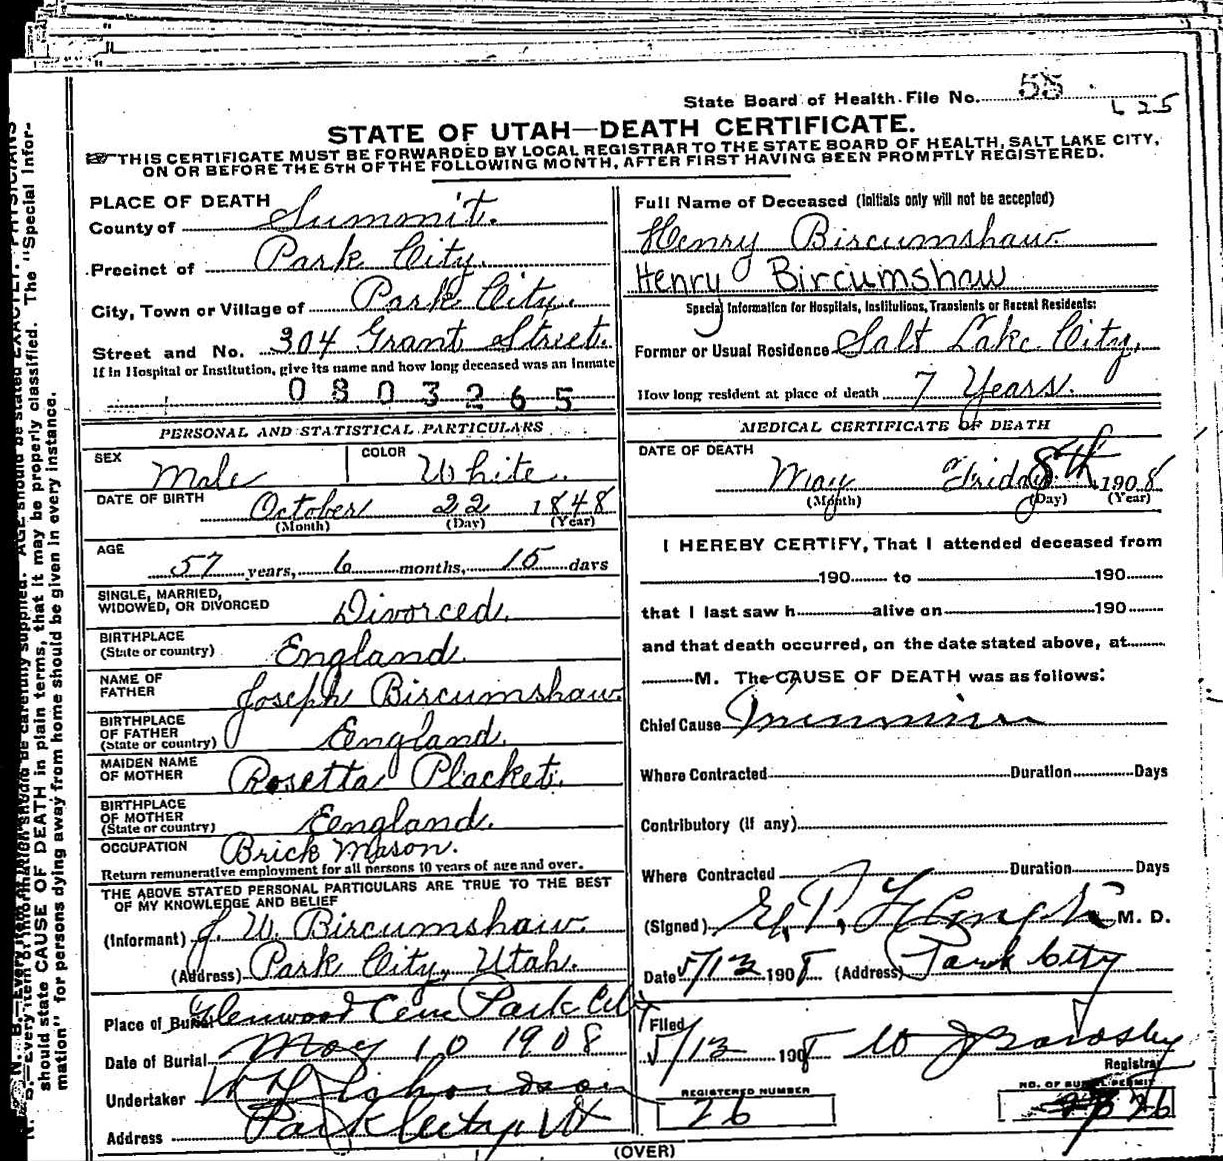 State Board of Health File No. 55
625
STATE OF UTAH—DEATH CERTIFICATE.
THIS CERTIFICATE MUST BE FORWARDED BY LOCAL REGISTRAR TO THE STATE BOARD OF HEALTH, SALT LAKE CITY,
ON OR BEFORE THE 5TH OF THE FOLLOWING MONTH, AFTER FIRST HAVING BEEN PROMPTLY REGISTERED.
PLACE OF DEATH
County of Summit.
Precinct of Park City.
City, Town or Village of Park City.
Street and No. 304 Grant Street.
If in Hospital or Institution, give its name and how long deceased was an inmate
0803265
PERSONAL AND STATISTICAL PARTICULARS
SEX Male COLOR White.
DATE OF BIRTH October 22 1848
(Month) (Day) (Year)
AGE 57 years, 6 months, 15 days
SINGLE, MARRIED,
WIDOWED, OR DIVORCED Divorced.
BIRTHPLACE
(State or country) England.
NAME OF
FATHER Joseph Bircumshaw.
BIRTHPLACE
OF FATHER
(State or country) England.
MAIDEN NAME
OF MOTHER Rosetta Placket.
BIRTHPLACE
OF MOTHER
(State or country) England.
OCCUPATION Brick Mason.
Return remunerative employment for all persons 10 years of age and over.
THE ABOVE STATED PERSONAL PARTICULARS ARE TRUE TO THE BEST
OF MY KNOWLEDGE AND BELIEF
(Informant) J. W. Bircumshaw.
(Address) Park City, Utah.
Place of Burial Glenwood Cem Park City
Date of Burial May 10 1908
Undertaker
Address Park City Ut
Full Name of Deceased (Initials only will not be accepted)
Henry Bircumshaw.
Henry Bircumshaw
Special Information for Hospitals, Institutions, Transients or Recent Residents:
Former or Usual Residence Salt Lake City.
How long resident at place of death 7 Years.
MEDICAL CERTIFICATE OF DEATH
DATE OF DEATH
May Friday 8th 1908
(Month) (Day) (Year)
I HEREBY CERTIFY, That I attended deceased from
190 to 190
that I last saw h alive on 190
and that death occurred, on the date stated above, at
M. The CAUSE OF DEATH was as follows:
Chief Cause
Where Contracted Duration Days
Contributory (if any)
Where Contracted Duration Days
(Signed) M. D.
Date 5/13 1908 (Address) Park City
Filed
5/13 1908
Registrar
REGISTERED NUMBER
26
NO. OF BURIAL PERMIT
26
(OVER)
N. B.—Every item of information should be carefully supplied. AGE should be stated EXACTLY. PHYSICIANS
should state CAUSE OF DEATH in plain terms, that it may be properly classified. The "Special Infor-
mation" for persons dying away from home should be given in every instance.